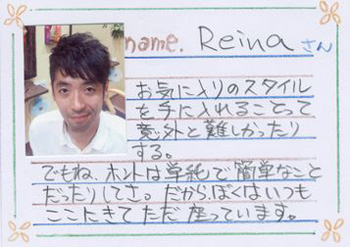 name. Reina さん
お気に入りのスタイル
を手に入れることって
意外と難しかったり
する。
でもね、ホントは単純で簡単なこと
だったりしてさ。だから、ぼくはいつも
ここにきてただ座っています。